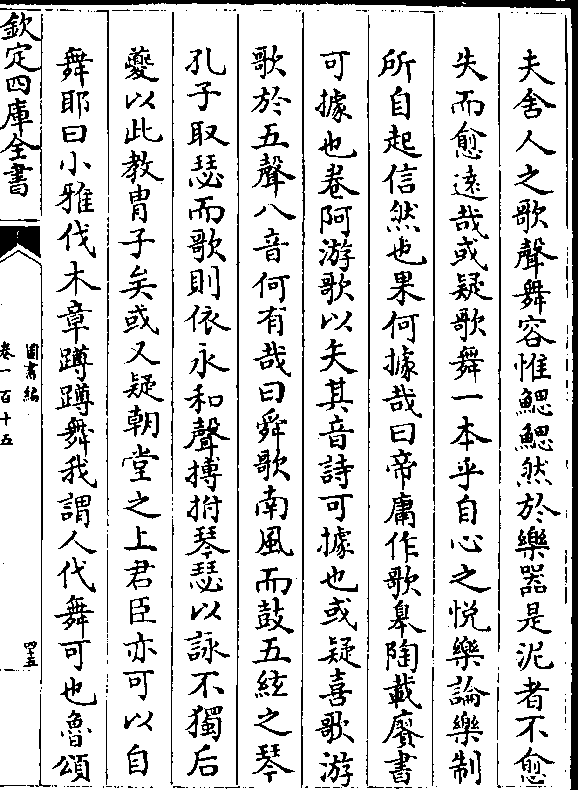 夫舍人之歌聲舞容惟鰓鰓然於樂器是泥者不愈
失而愈遠哉或疑歌舞一本乎自心之悦樂論樂制
所自起信然也果何據哉曰帝庸作歌臯陶載賡書
可據也卷阿游歌以矢其音詩可據也或疑喜歌游
歌於五聲八音何有哉曰舜歌南風而鼓五絃之琴
孔子取瑟而歌則依永和聲搏拊琴瑟以詠不獨后
夔以此教胄子矣或又疑朝堂之上君臣亦可以自
舞耶曰小雅伐木章蹲蹲舞我謂人代舞可也魯頌
欽定四庫全書
圖書編
卷一百十五
四十五